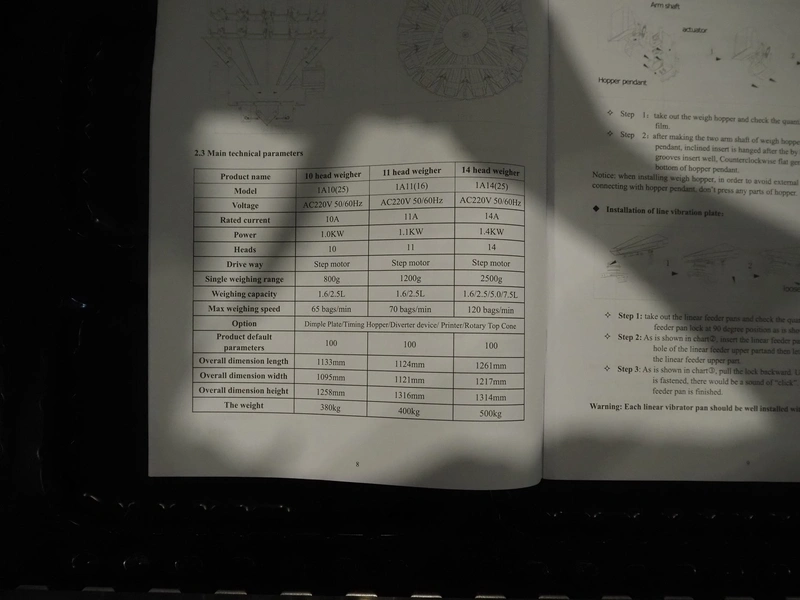 2.3 Main technical parameters
Product name 10 head weigher 11 head weigher 14 head weigher
Model 1A10(25) 1A11(16) 1A14(25)
Voltage AC220V 50/60Hz AC220V 50/60Hz AC220V 50/60Hz
Rated current 10A 11A 14A
Power 1.0KW 1.1KW 1.4KW
Heads 10 11 14
Drive way Step motor Step motor Step motor
Single weighing range 800g 1200g 2500g
Weighing capacity 1.6/2.5L 1.6/2.5L 1.6/2.5/5.0/7.5L
Max weighing speed 65 bags/min 70 bags/min 120 bags/min
Option Dimple Plate/Timing Hopper/Diverter device/ Printer/Rotary Top Cone
Product default
parameters 100 100 100
Overall dimension length 1133mm 1124mm 1261mm
Overall dimension width 1095mm 1121mm 1217mm
Overall dimension height 1258mm 1316mm 1314mm
The weight 380kg 400kg 500kg
8
Arm shaft
actuator
Hopper pendant
✧ Step 1: take out the weigh hopper and check the
film.
✧ Step 2: after making the two arm shaft of weigh
pendant, inclined insert is hanged after the by
grooves insert well, Counterclockwise flat
bottom of hopper pendant.
Notice: when installing weigh hopper, in order to avoid external
connecting with hopper pendant, don't press any parts of hopper
◆ Installation of line vibration plate:
✧ Step 1: take out the linear feeder pans and check the
feeder pan lock at 90 degree position as is
✧ Step 2: As is shown in chart②, insert the linear feeder
hole of the linear feeder upper partand then
the linear feeder upper part.
✧ Step 3: As is shown in chart③, pull the lock backward.
is fastened, there would be a sound of "click".
feeder pan is finished.
Warning: Each linear vibrator pan should be well installed